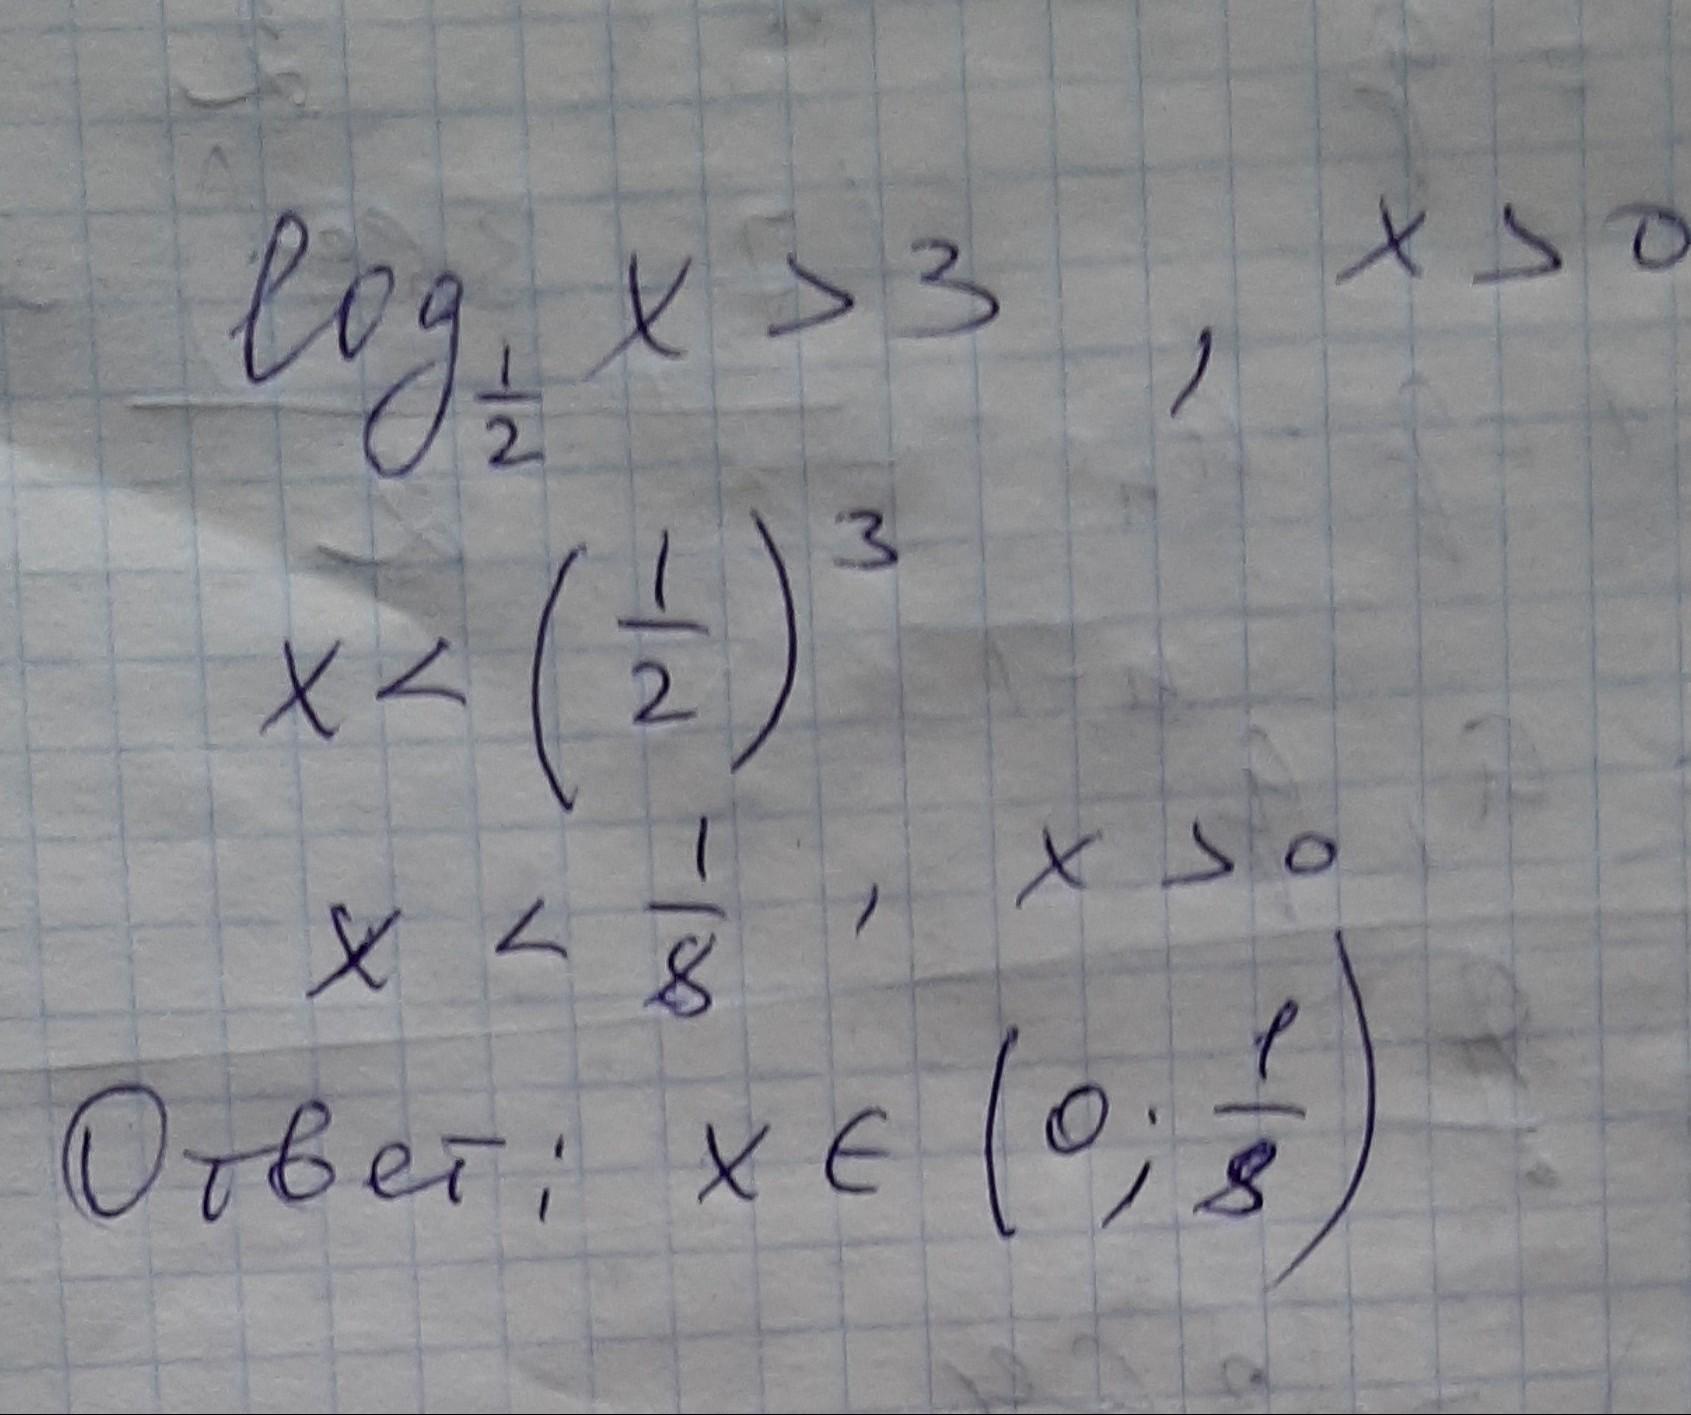 log_{1/2} x > 3 , x > 0
x < (1/2)^3
x < 1/8 , x > 0
Ответ: x ∈ (0; 1/8)